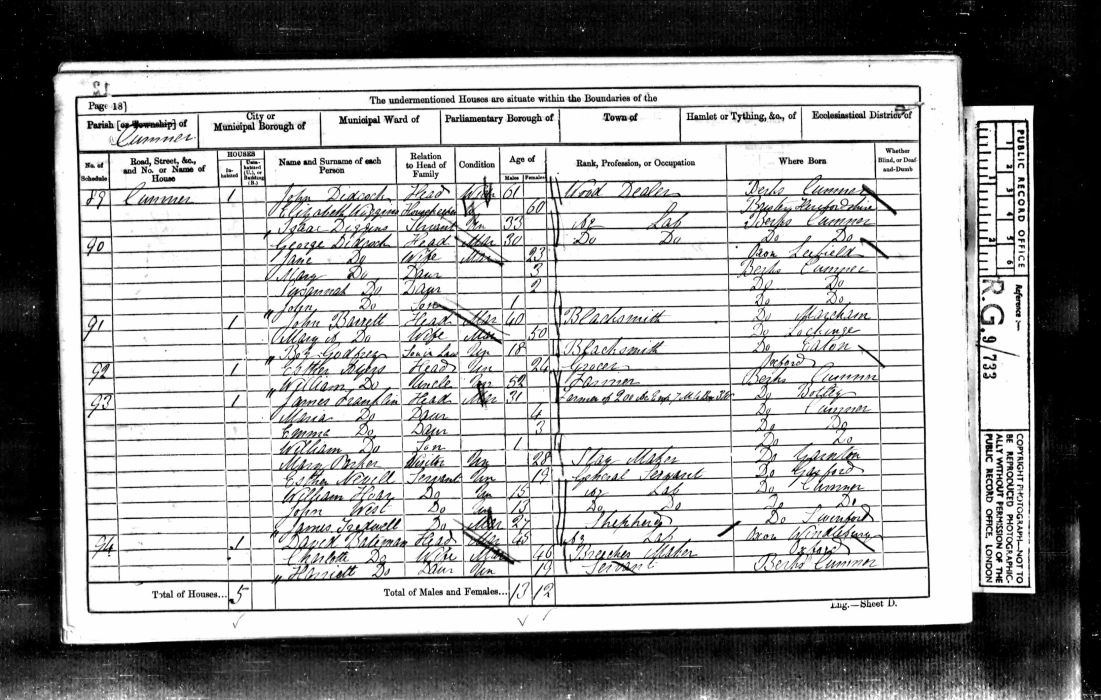 Page 18]
The undermentioned Houses are situate within the Boundaries of the
Parish [or Township] of
Cumner
City or
Municipal Borough of
Municipal Ward of
Parliamentary Borough of
Town of
Hamlet or Tything, &c., of
Ecclesiastical District of
No. of Schedule
Road, Street, &c., and No. or Name of House
HOUSES
Inhabited
Uninhabited (U.), or Building (B.)
Name and Surname of each Person
Relation to Head of Family
Condition
Age of
Males
Females
Rank, Profession, or Occupation
Where Born
Whether Blind, or Deaf-and-Dumb
89 Cumner 1 John Didcock Head 61 Wood Dealer Berks Cumner
Elizabeth Housekeeper 60
Isaac Servant Un 33 Ag Lab Berks Cumner
90 George Didcock Head Mar 30 Do Do Do Do
Jane Do Wife Mar 23 Oxon
Mary Do Daur 3 Berks Cumner
Susannah Do Daur 2 Do Do
John Do Son 1 Do Do
91 1 John Barrett Head Mar 40 Blacksmith Do Marcham
Mary Do Wife Mar 50 Do Lockinge
Godfrey Son in Law Un 18 Blacksmith Do Eaton
92 1 Esther Ayers Head Un 24 Grocer Oxford
William Do Uncle Un 52 Farmer Berks Cumner
93 1 James Franklin Head Mar 31 Farmer of Do Botley
Maria Do Daur 4 Do Cumner
Emma Do Daur 3 Do Do
William Do Son 1 Do Do
Mary Parker Visitor Un 28 Stay Maker Do
Esther Nevill Servant Un 19 General Servant Do
William Do Un 15 Ag Lab Do Cumner
John West Do Un 13 Do Do Do Do
James Tredwell Do Mar 27 Shepherd Do Swinford
94 1 David Bateman Head Mar 45 Ag Lab Oxon
Charlotte Do Wife Mar 46 Breeches Maker Oxford
Harriett Do Daur Un 19 Servant Berks Cumner
Total of Houses... 5
Total of Males and Females... 13 12
Eng.—Sheet D.
PUBLIC RECORD OFFICE
1 2 3 4 5 6
Reference :—
R.G. 9/733
COPYRIGHT PHOTOGRAPH—NOT TO
BE REPRODUCED PHOTOGRAPHIC-
ALLY WITHOUT PERMISSION OF THE
PUBLIC RECORD OFFICE, LONDON